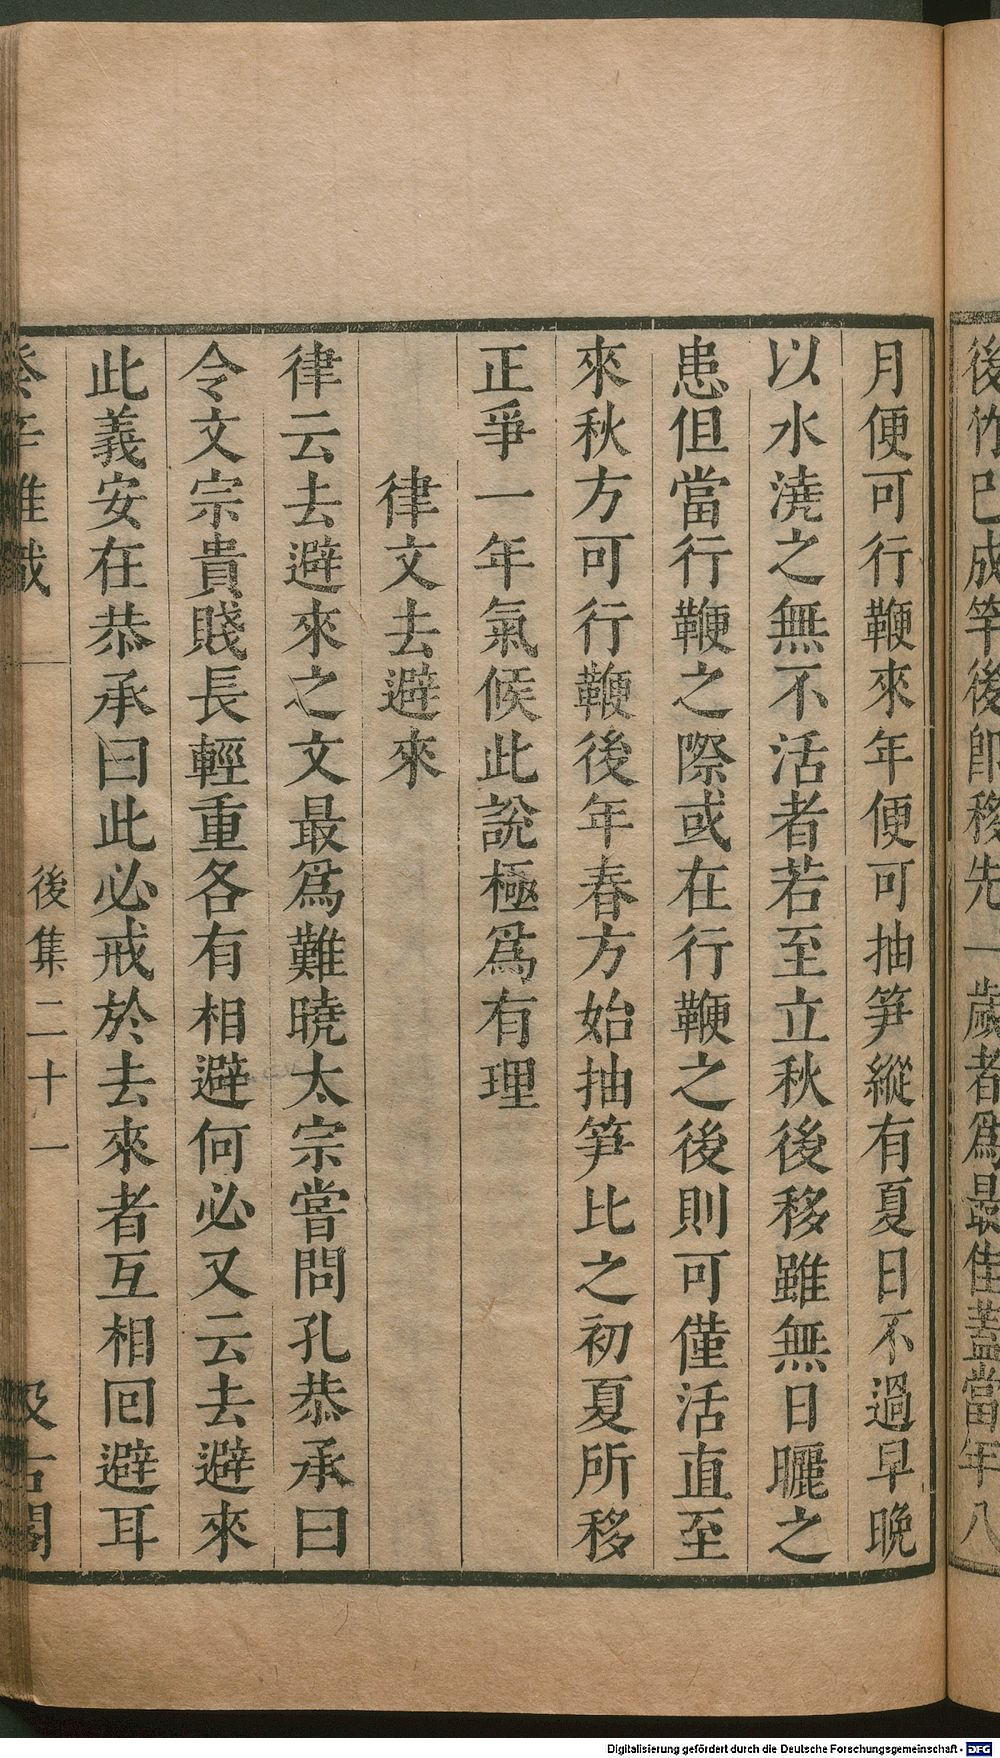 後竹已成竿後即移先一歲者爲最佳蓋當年八
月便可行鞭來年便可抽笋縱有夏日不過早晚
以水澆之無不活者若至立秋後移雖無日曬之
患但當行鞭之際或在行鞭之後則可僅活直至
來秋方可行鞭後年春方始抽笋比之初夏所移
正爭一年氣候此說極爲有理
律文去避來
律云去避來之文最爲難曉太宗嘗問孔恭承曰
令文宗貴賤長輕重各有相避何必又云去避來
此義安在恭承曰此必戒於去來者互相回避耳
癸辛雜識
後集二十一
汲古閣
Digitalisierung gefördert durch die Deutsche Forschungsgemeinschaft - DFG